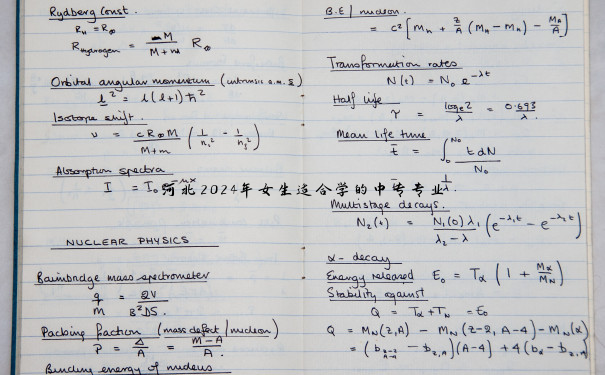 Rydberg Const.
R_H = R_∞
R_Hydrogen = M / (M + m) R_∞
Orbital angular momentum (intrinsic a.m. s)
l² = l(l+1)ħ²
Isotope shift.
ν = cR_∞M / (M+m) (1/n₁² - 1/n₂²)
Absorption spectra
I = I₀e^(-μx)
NUCLEAR PHYSICS
Bainbridge mass spectrometer
q/m = 2V / B²DS.
Packing fraction (mass defect/nucleon)
P = Δ/A = (M-A)/A.
Binding energy of nucleus
B.E / nucleon.
= c² [M_n + Z/A (M_H - M_n) - M_A/A]
Transformation rates
N(t) = N₀ e^(-λt)
Half Life
τ = log_e 2 / λ = 0.693 / λ.
Mean life time
t̄ = ∫₀^(N₀) t dN / N₀
= 1/λ.
河北2024年女生适合学的中专专业
Multistage decays.
N₂(t) = N₁(0)λ₁ / (λ₂ - λ) (e^(-λ₁t) - e^(-λ₂t))
α - decay
Energy released E₀ = T_α (1 + M_α/M_N)
Stability against
Q = T_α + T_N = E₀
Q = M_N(Z,A) - M_N(Z-2, A-4) - M_N(α)
= (b_(Z-2,A-4) - b_(Z,A))(A-4) + 4(b_α - b_(Z,A))